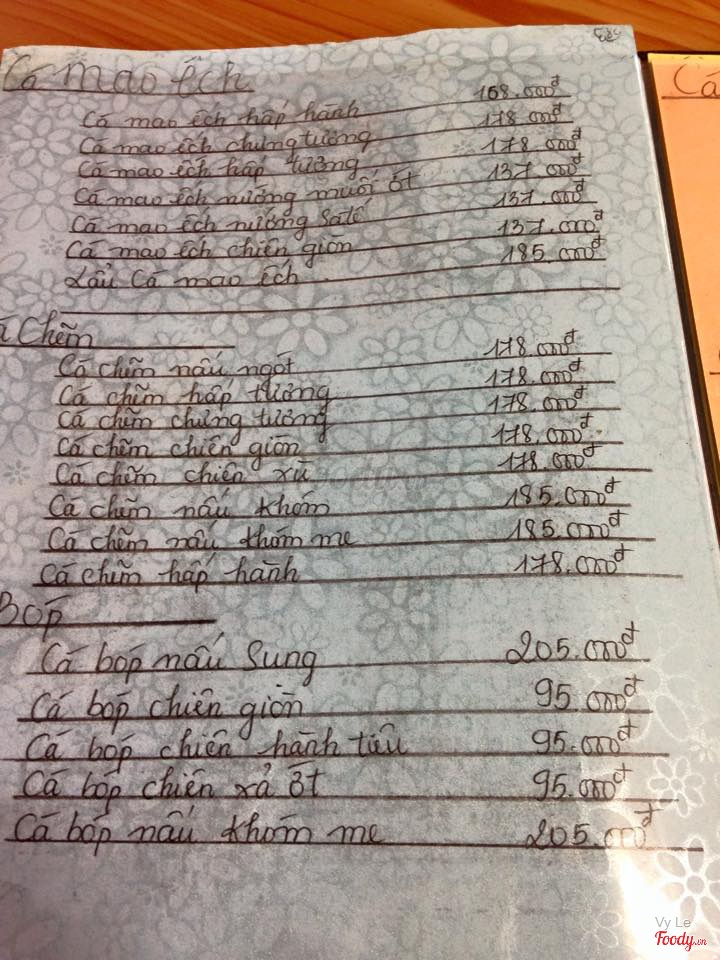 Cá mao ếch
Cá mao ếch hấp hành 168.000đ
Cá mao ếch chưng tương 178.000đ
Cá mao ếch hấp tương 178.000đ
Cá mao ếch nướng muối ớt 137.000đ
Cá mao ếch nướng Sa tế 137.000đ
Cá mao ếch chiên giòn 137.000đ
Lẩu Cá mao ếch 185.000đ
Chẽm
Cá chẽm nấu ngót 178.000đ
Cá chẽm hấp tương 178.000đ
Cá chẽm chưng tương 178.000đ
Cá chẽm chiên giòn 178.000đ
Cá chẽm chiên xù 178.000đ
Cá chẽm nấu khóm 185.000đ
Cá chẽm nấu khóm me 185.000đ
Cá chẽm hấp hành 178.000đ
Bóp
Cá bóp nấu Sung 205.000đ
Cá bóp chiên giòn 95.000đ
Cá bóp chiên hành tiêu 95.000đ
Cá bóp chiên xả ớt 95.000đ
Cá bóp nấu khóm me 205.000đ
Cá
Vy Le
Foody.vn